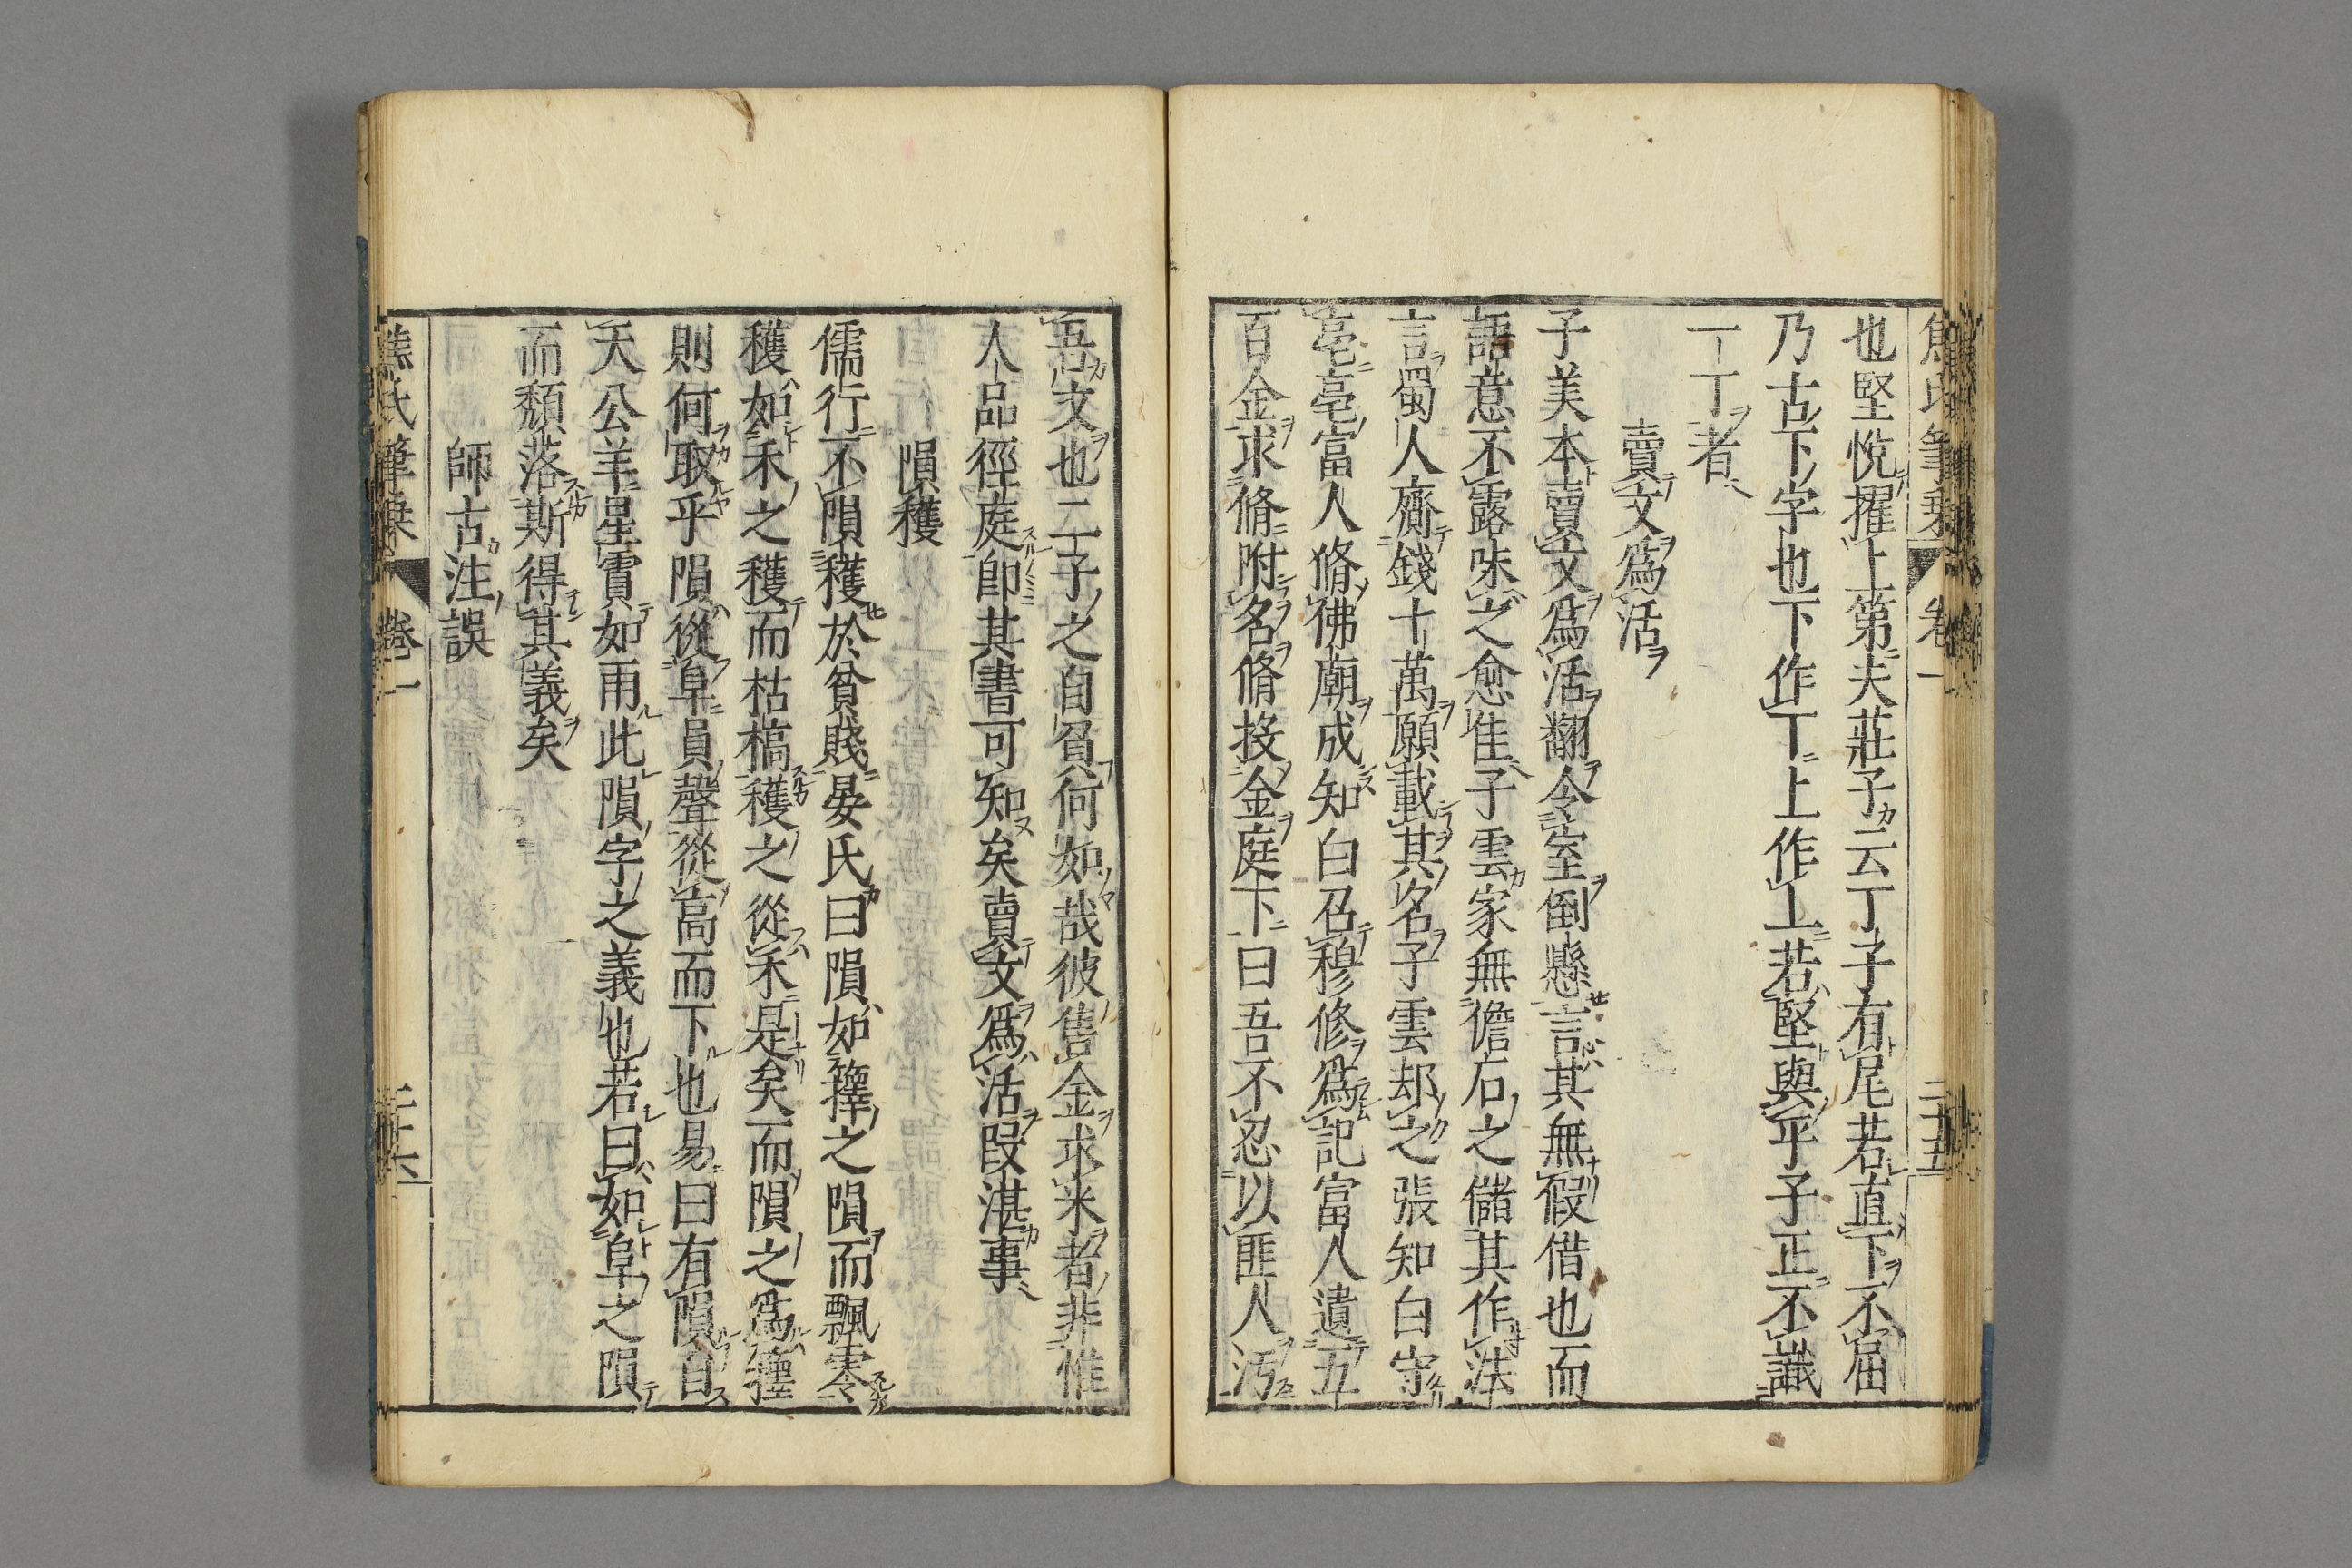 焦氏筆乗 卷一 二十五
也堅悅擢上第夫莊子云丁子有尾若直下不屈
乃古下字也下作丅上作丄若堅與平子正不識
一丁者
賣文爲活
子美本賣文爲活翻令室倒懸言其無假借也而
語意不露味之愈佳子雲家無儋石之儲其作法
言蜀人齎錢十萬願載其名子雲却之張知白守
亳亳富人脩佛廟成知白召穆修爲記富人遺五
百金求脩附名脩投金庭下曰吾不忍以匪人汚
吾文也二子之自負何如哉彼售金求米者非惟
人品徑庭卽其書可知矣賣文爲活段湛事
隕穫
儒行不隕穫於貧賤晏氏曰隕如籜之隕而飄零
穫如禾之穫而枯槁穫之從禾是矣而隕之爲籜
則何取乎隕從阜員聲從高而下也易曰有隕自
天公羊星霣如雨此隕字之義也若曰如阜之隕
而頹落斯得其義矣
師古注誤
焦氏筆乗 卷一 二十六